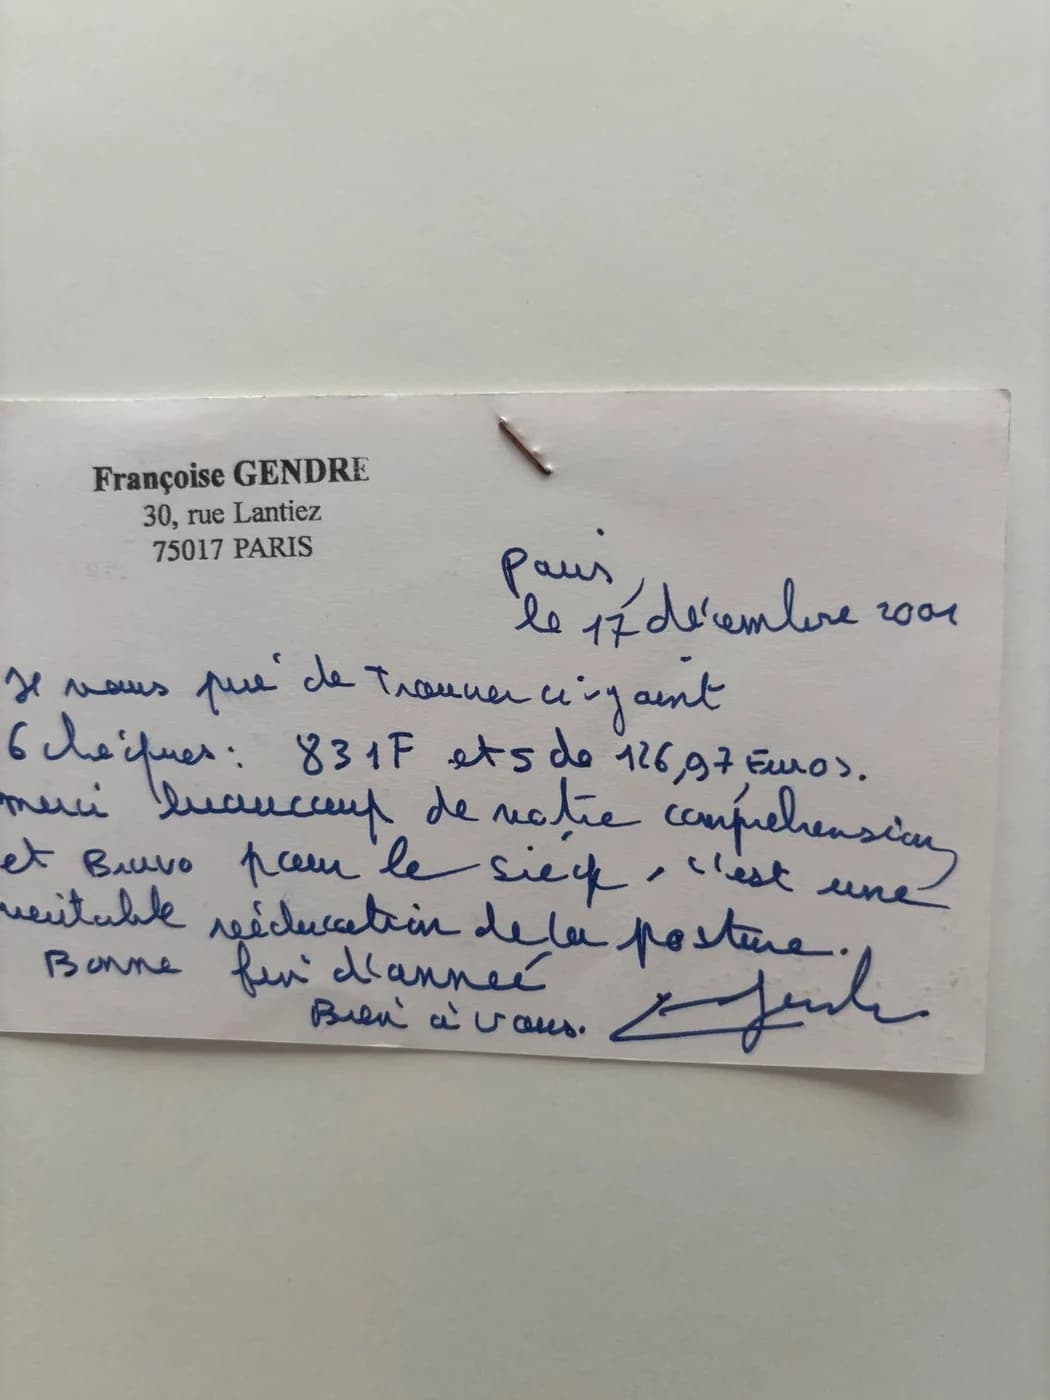 Françoise GENDRE
30, rue Lantiez
75017 PARIS
Paris,
le 17 décembre 2001
Je vous prie de trouver ci-joint
6 chèques: 831F et 5 de 126,97 Euros.
merci beaucoup de votre compréhension
et Bravo pour le siège, c'est une
véritable rééducation de la posture.
Bonne fin d'année
Bien à vous.